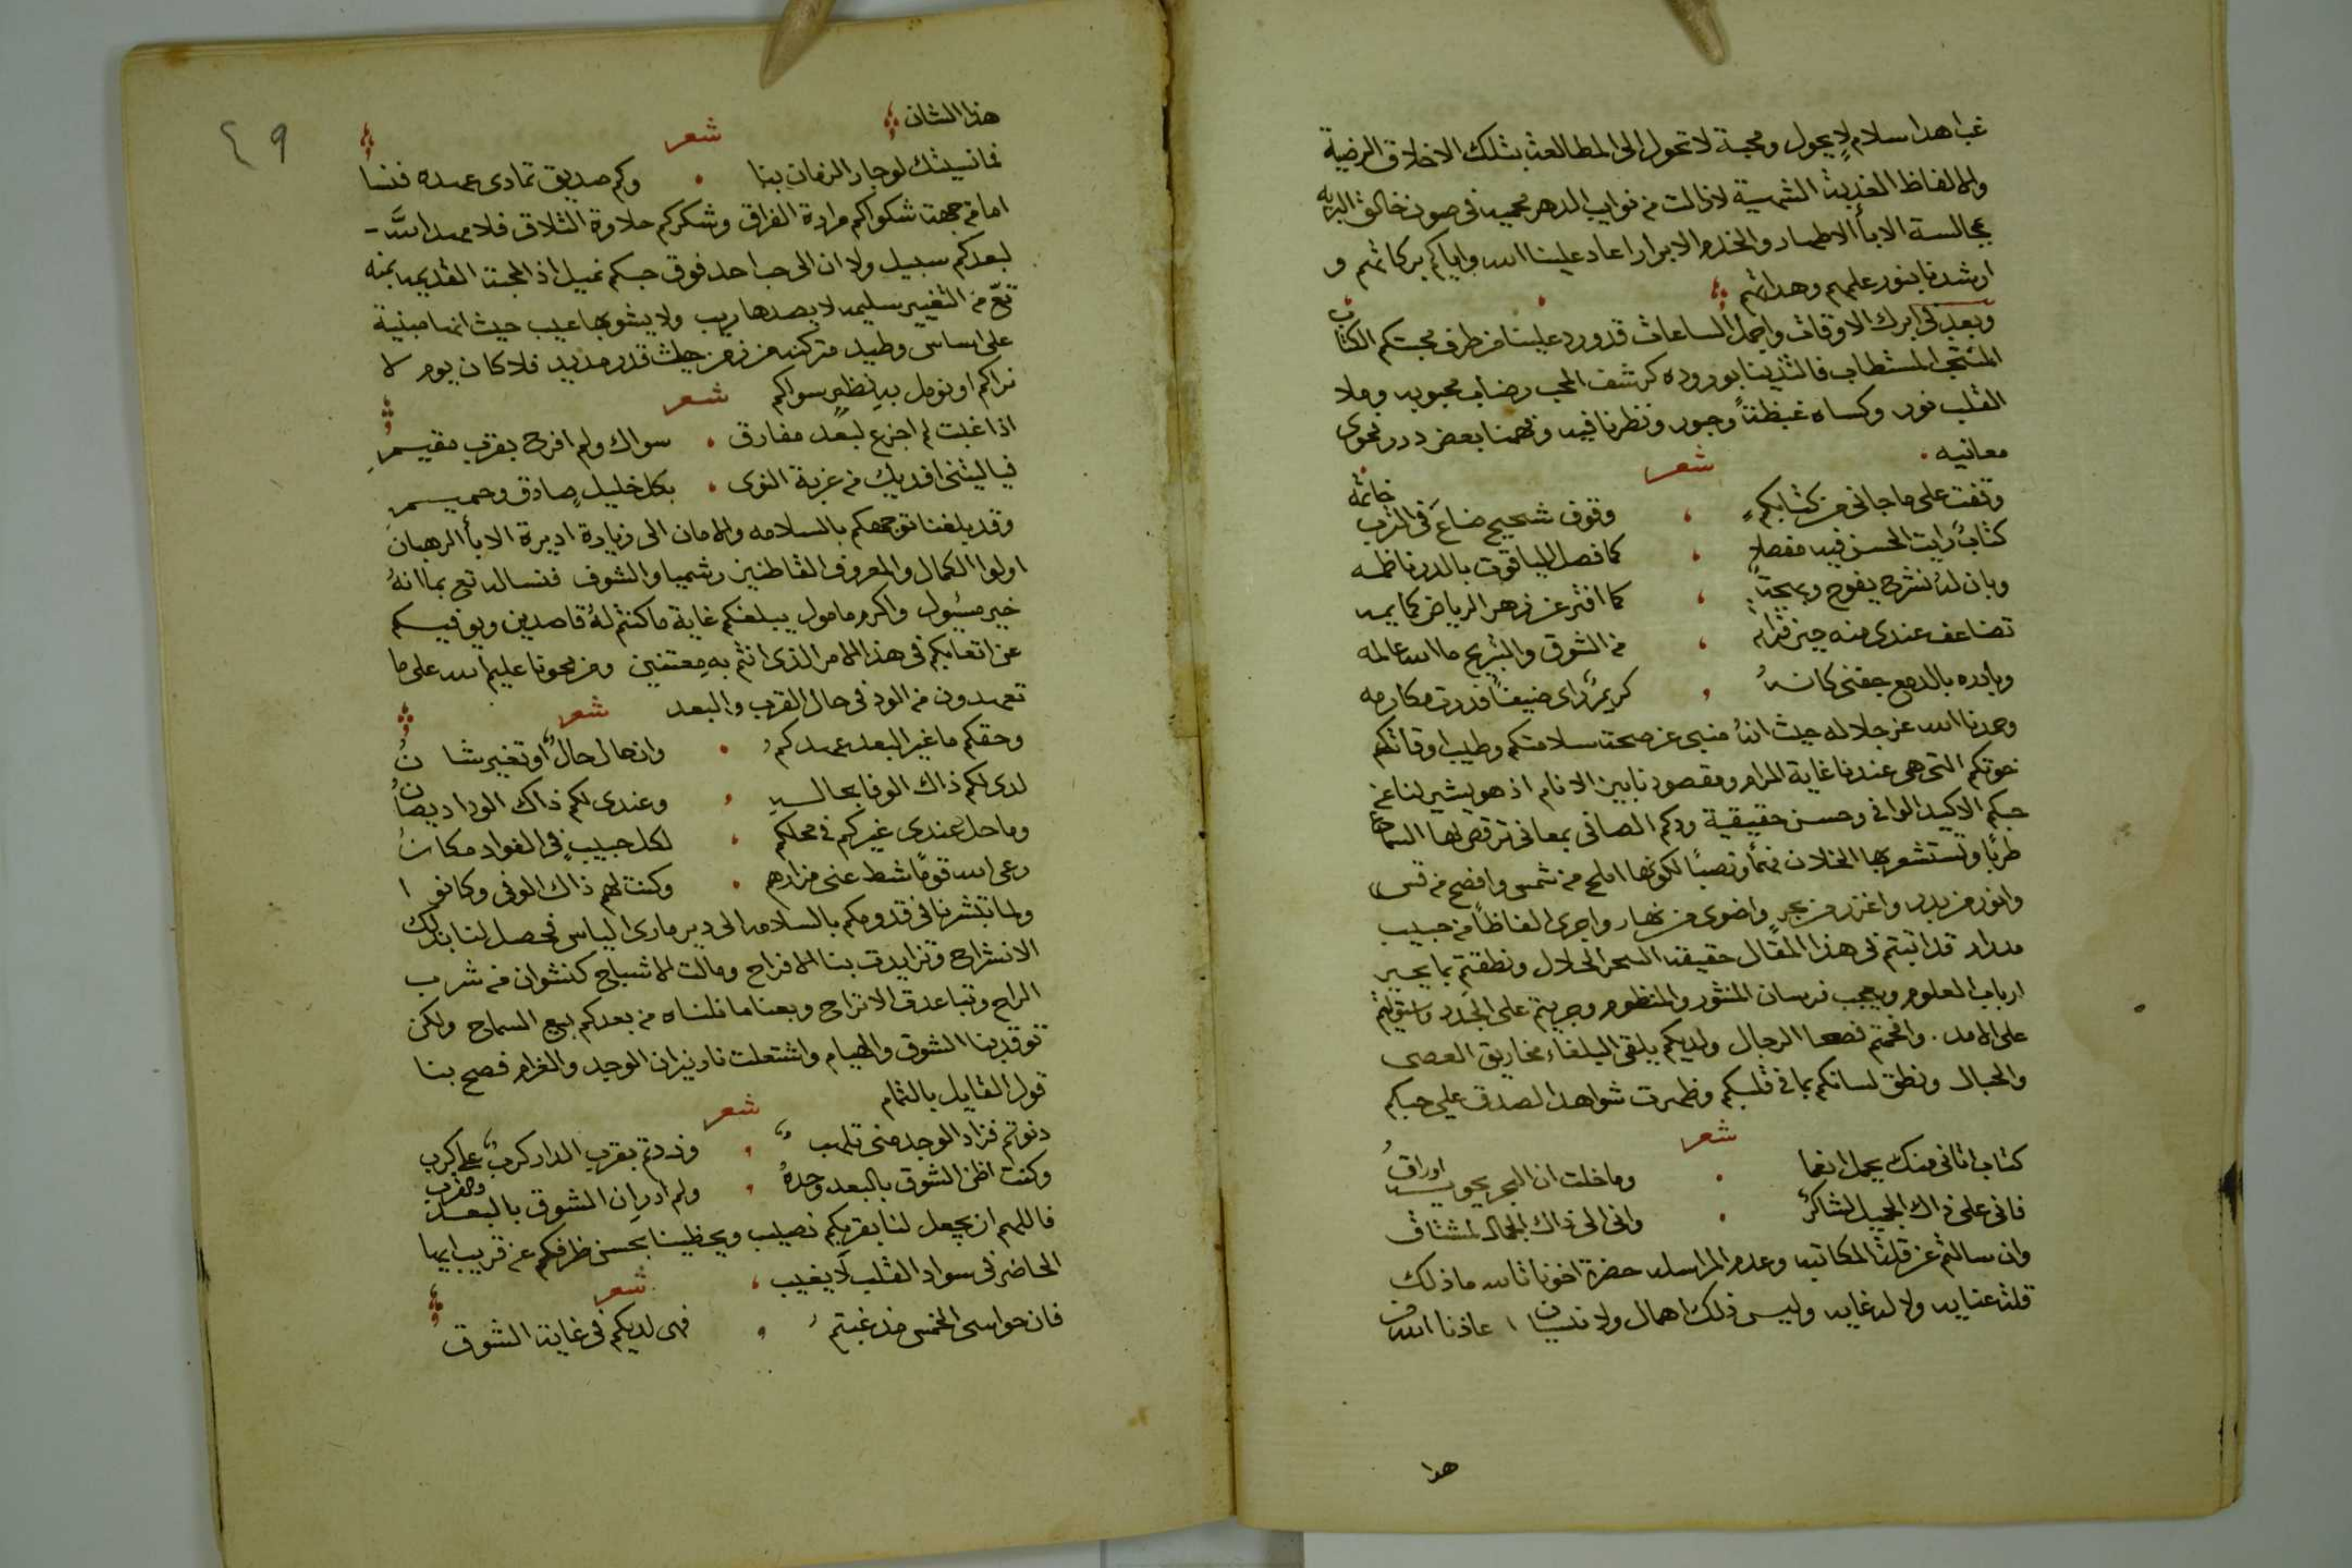 غب اهدا سلام لا يحول ومحبة لا تحول الى المطالعة بتلك الاخلاق الرضية
والالفاظ العذبة الشهية لا زالت من نوايب الدهر محميه في صون خالق البريه
بمجالسة الابأ الاطهار والخدم الابرار اعاد علينا الله واياكم بركاتهم و
ارشدنا بنور علمهم وهداتهم
وبعد في ابرك الاوقات واجمل الساعات قد ورد علينا من طرف محبتكم الكتاب
المستطاب فالتذينا بوروده كرشف المحب رضاب محبوبه وملا
القلب نور وكساه غبظتاً وحبور ونظرنا فيه وفهمنا بعض درر نحوى
معانيه
شعر
وقفت على ما جاني من كتابكم ، وقوف شحيح ضاع في الترب خاتمه
كتابٌ رايت الحسن فيه مفصلا ، كما فصل الياقوت بالدر ناظمه
وبان له نشرٌ يفوح وبهجتهٌ ، كما افتر عن زهر الرياض كمايمه
تضاعف عندي منه حين قراته ، من الشوق والتبريح ما الله عالمه
وبادره بالدمع جفني كانهُ ، كريمٌ راى ضيفاً فدرت مكارمه
وحمدنا الله عز جلاله حيث انهُ منبي عن صحة سلامتكم وطيب اوقاتكم
خوتكم التي هي عندنا غاية المرام ومقصودنا بين الانام اذ هو يشير لنا عن
حبكم الاكيد الوافي وحسن حقيقية ودكم الصافي بمعاني ترقص لها السماع
طربًا وتستشعر بها الخلان فهمًا وتصببًا لكونها املح من شمس وافصح من قس
وانور من بدر واغزر من بحرٍ واضوى من نهار واجرى الفاظًا من حبيب
مدرار قد اتيتم في هذا المقال حقيقة السحر الحلال ونطقتم بما يحير
ارباب العلوم ويعجب فرسان المنثور والمنظوم وجريتم على الجدد وسبقتم
على الامد . وافحمتم فصحا الرجال ولديكم يلقى البلغاء مخاريق العصى
والحبال ونطق لسانكم بما في قلبكم وظهرت شواهد الصدق على حبكم
شعر
كتاب اتاني منك يحمل انعما ، وما خلت ان البحر يحويه اوراقُ
فاني على ذاك الجميل لشاكرٌ ، واني الى ذاك الجمال لمشتاق
وان سالتم عن قلة المكاتبه وعدم المراسله حضرة اخونا تالله ما ذلك
قلة عنايه ولا لدغايه وليس ذلك اهمال ولا نسيان اعاذنا الله من
هذا
٤٩
هذا الشان
شعر
فما نسيتك لو جار الزمان بنا ، وكم صديق تمادى عهده فنسا
اما من جهة شكواكم مرارة الفراق وشكركم حلاوة التلاق فلا مهد الله
لبعدكم سبيل ولا ان الى حب احد فوق حبكم نميل اذ المحبة القديمه بمنه
تع من التغيير سليمه لا يصدها ريب ولا يشوبها عيب حيث انها مبنية
على اساس وطيد متركنه من زمن حيث قدر مديد فلا كان يوم لا
نراكم او نومل به نظير سواكم
شعر
اذا غبت لم اجزع لبعد مفارق ، سواك ولم افرح بقرب مقيم
فيا ليتني افديك من غربة النوى ، بكل خليلٍ صادق وحميم
وقد بلغنا توجهكم بالسلامه والامان الى زيارة اديرة الابأ الرهبان
اولوا الكمال والمعروف القاطنين رشميا والشوف فنساله تع بما انهُ
خير مسيول واكرم مامول يبلغكم غاية ما كنتم لهُ قاصدين ويوفيكم
عن اتعابكم في هذا الامر الذي انتم به معتنين ونحونا عليم الله على ما
تعهدون من الود في حال القرب والبعد
شعر
وحقكم ما غير البعد عهدكم ، وان حال حالٌ او تغير شانُ
لدي لكم ذاك الوفا بحاله ، وعندي لكم ذاك الوداد يصانُ
وما حل عندي غيركم في محلكم ، لكل حبيبٍ في الفواد مكانُ
رعى الله قومًا شط عني مزارهم ، وكنت لهم ذاك الوفي وكانوا
ولما تبشرنا في قدومكم بالسلامه الى دير ماري الياس فحصل لنا بذلك
الانشراح وتزايدت بنا الافراح ومالت الاشباح كنشوان من شرب
الراح وتباعدت الاتراح وبعنا ما نلناه من بعدكم بيع السماح ولكن
توقد بنا الشوق والهيام واشتعلت نار نيران الوجد والغرام فصح بنا
قول القايل بالتمام
شعر
دنوتم فزاد الوجد مني تلهب ، وزدتم بقرب الدار كربٌ على كرب
وكنت اظن الشوق بالبعد وحدهُ ، ولم ادر ان الشوق بالبعد والقرب
فاللهم ان يجعل لنا بقربكم نصيب ويحظينا بحسن ظرفكم عن قريب ايها
الحاضر في سواد القلب لا يغيب
شعر
فان حواسي الخمس مذ غبتم ، فهي لديكم في غاية الشوق